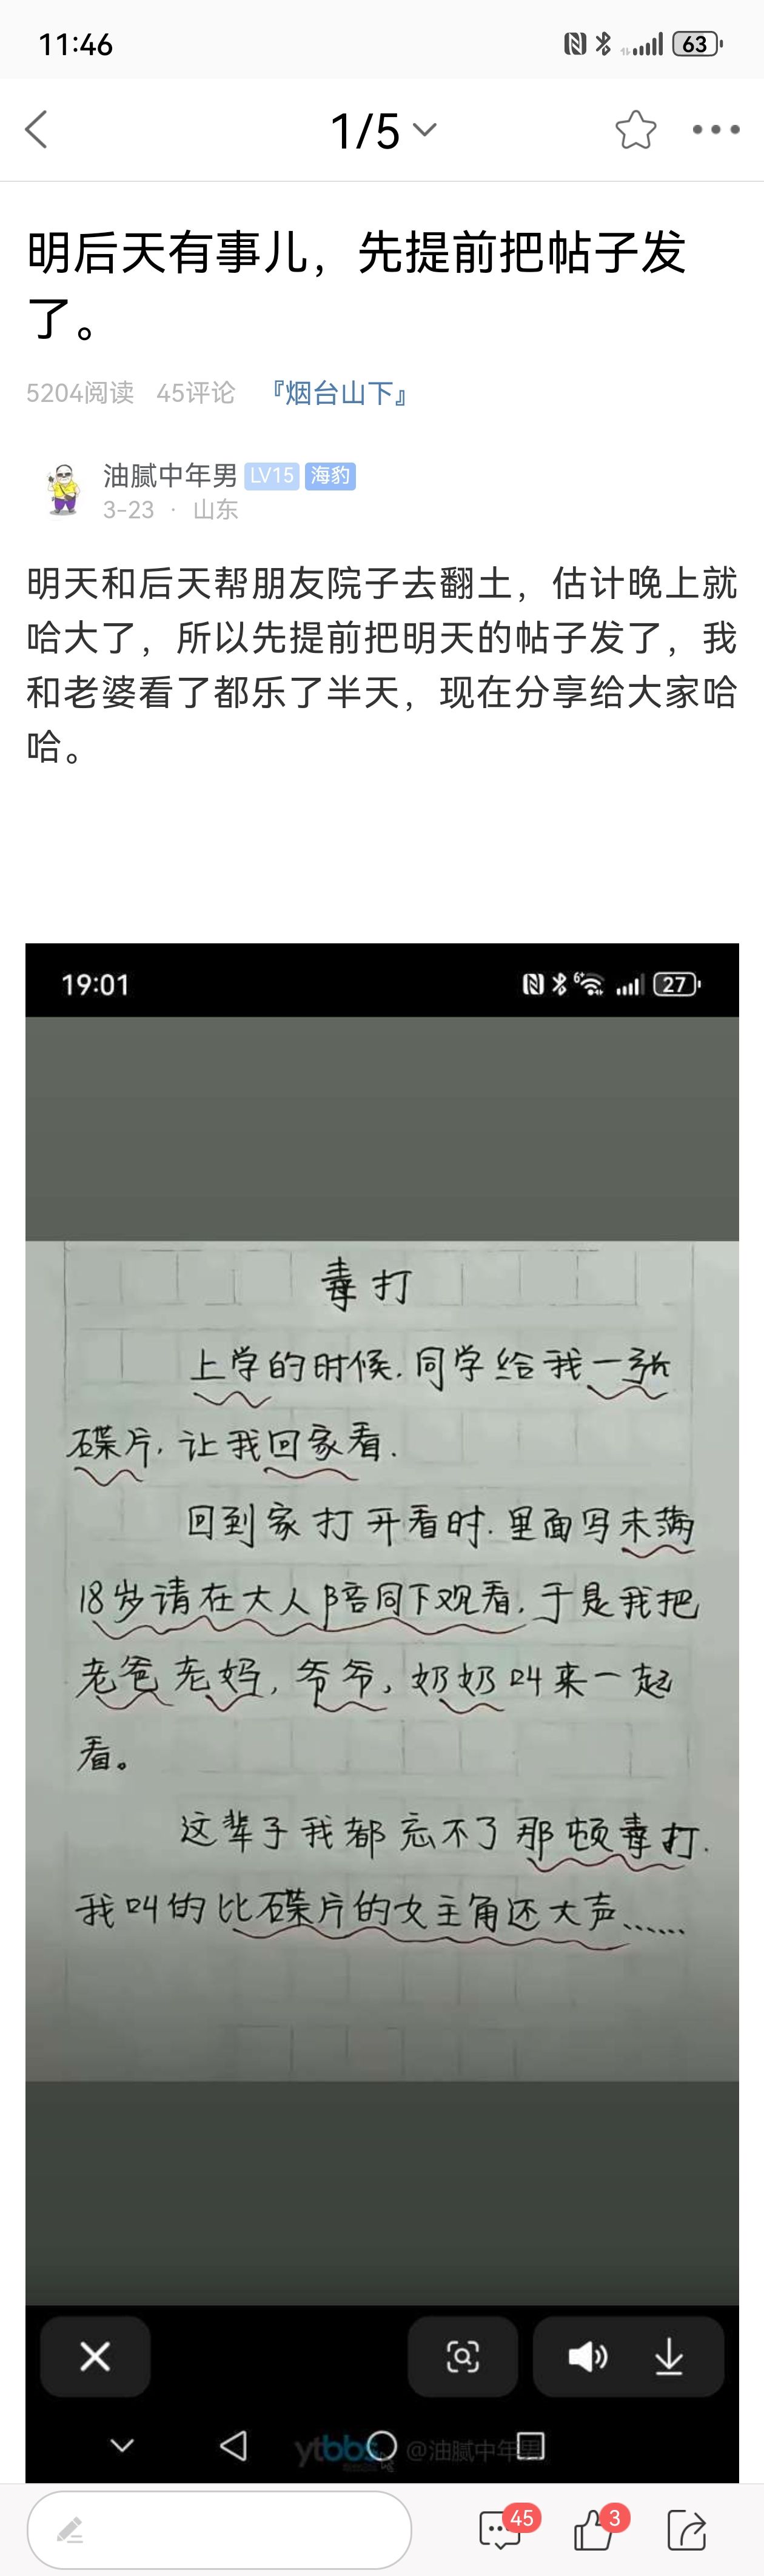 11:46
63
1/5
明后天有事儿，先提前把帖子发
了。
5204阅读 45评论 『烟台山下』
油腻中年男 LV15 海豹
3-23 · 山东
明天和后天帮朋友院子去翻土，估计晚上就
哈大了，所以先提前把明天的帖子发了，我
和老婆看了都乐了半天，现在分享给大家哈
哈。
19:01
27
毒打
上学的时候.同学给我一张
碟片,让我回家看.
回到家打开看时.里面写未满
18岁请在大人陪同下观看,于是我把
老爸老妈,爷爷,奶奶叫来一起
看。
这辈子我都忘不了那顿毒打.
我叫的比碟片的女主角还大声......
ytbbs @油腻中年男
45
3